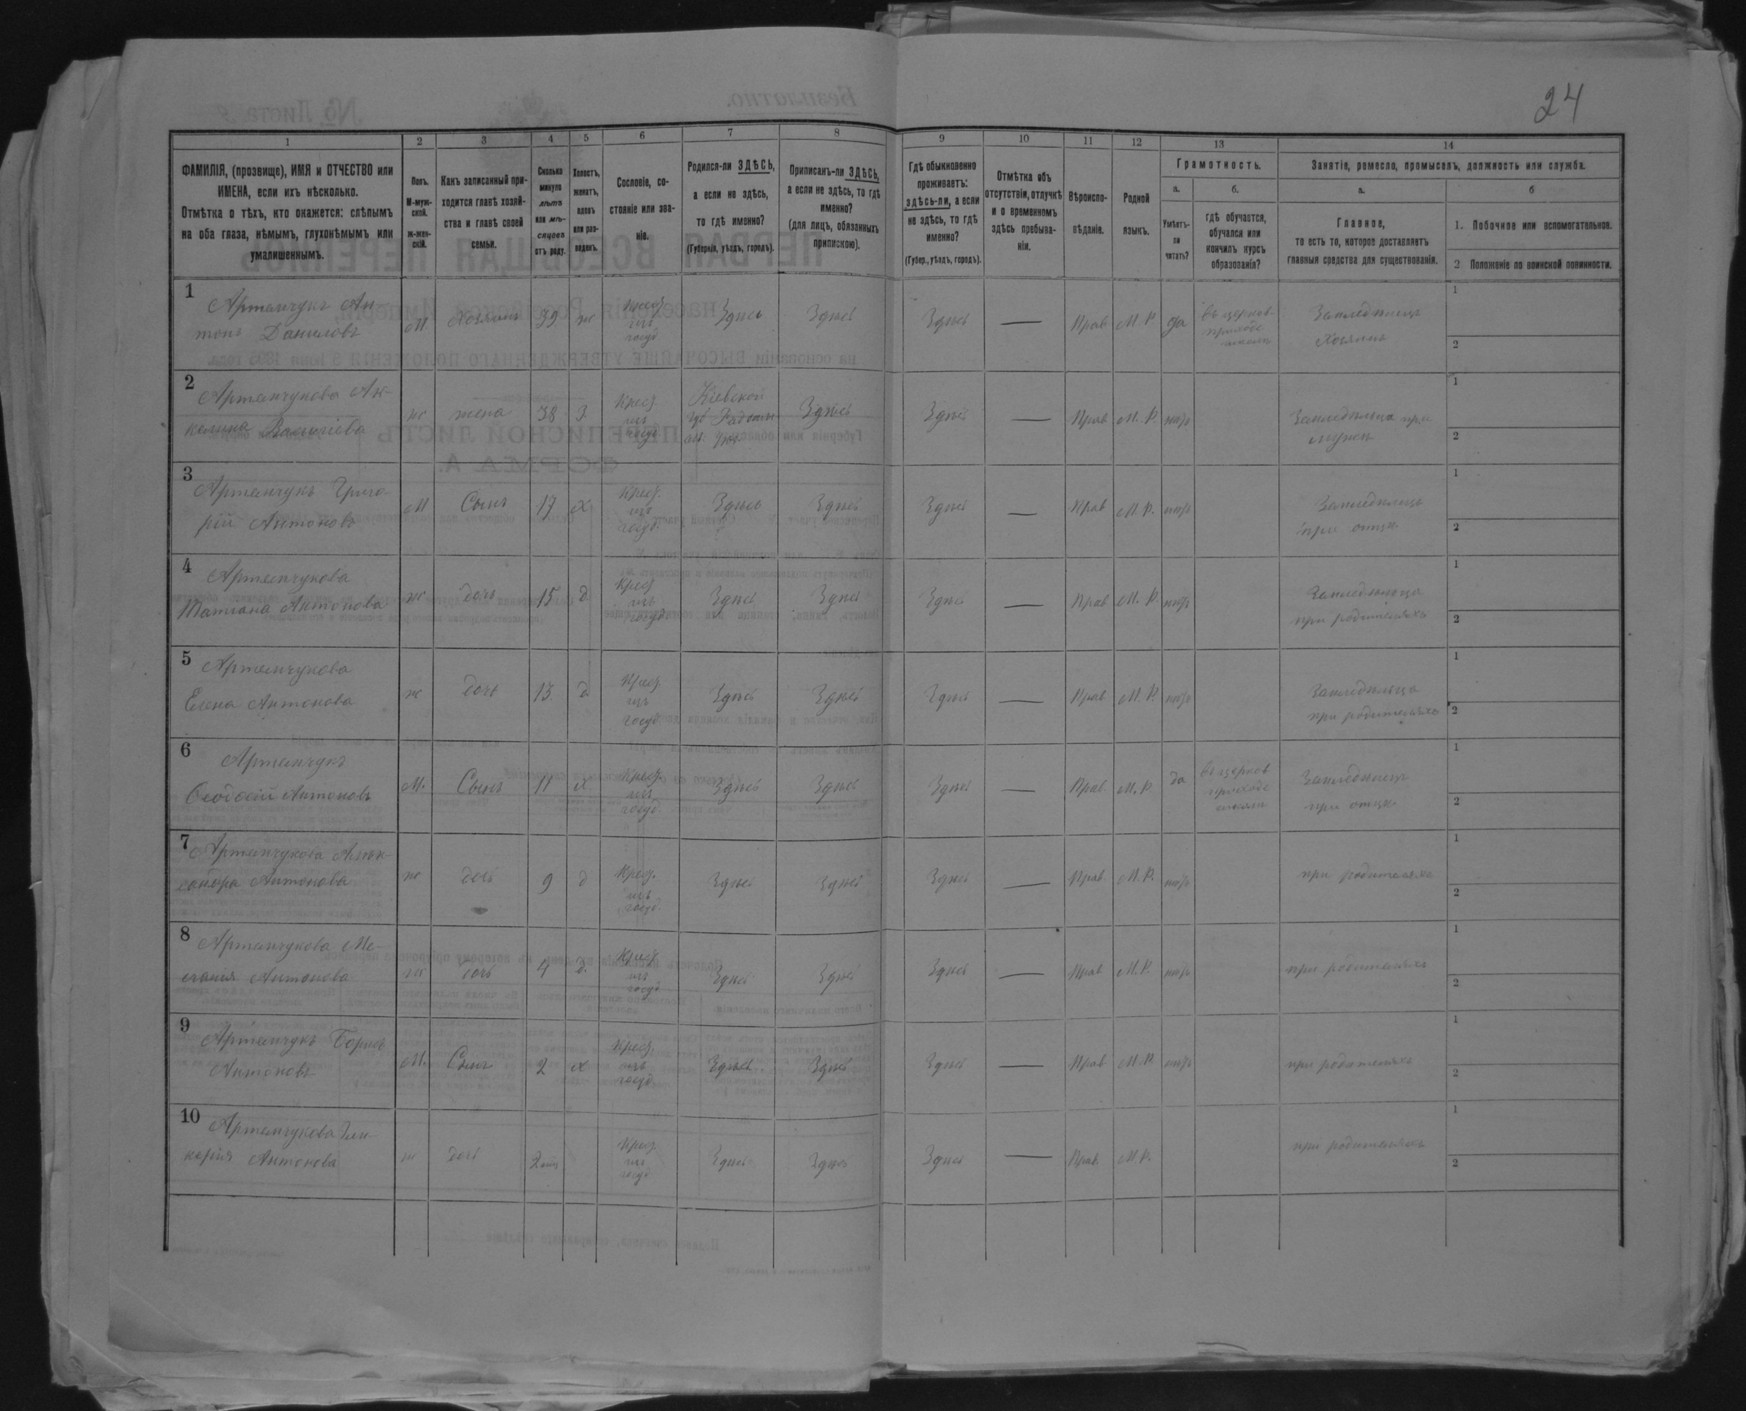 24
1 2 3 4 5 6 7 8 9 10 11 12 13 14
ФАМИЛІЯ, (прозвище), ИМЯ и ОТЧЕСТВО или
ИМЕНА, если ихъ нѣсколько.
Отмѣтка о тѣхъ, кто окажется: слѣпымъ
на оба глаза, нѣмымъ, глухонѣмымъ или
умалишеннымъ.
Полъ.
М-муж-
ской.
ж-жен-
скій.
Какъ записанный при-
ходится главѣ хозяй-
ства и главѣ своей
семьи.
Сколько
минуло
лѣтъ
или мѣ-
сяцевъ
отъ роду.
Холостъ,
женатъ,
вдовъ
или раз-
веденъ.
Сословіе, со-
стояніе или зва-
ніе.
Родился-ли ЗДѢСЬ,
а если не здѣсь,
то гдѣ именно?
(Губернія, уѣздъ, городъ).
Приписанъ-ли ЗДѢСЬ,
а если не здѣсь, то гдѣ
именно?
(для лицъ, обязанныхъ
припискою).
Гдѣ обыкновенно
проживаетъ:
здѣсь-ли, а если
не здѣсь, то гдѣ
именно?
(Губер., уѣздъ, городъ).
Отмѣтка объ
отсутствіи, отлучкѣ
и о временномъ
здѣсь пребыва-
ніи.
Вѣроиспо-
вѣданіе.
Родной
языкъ.
Грамотность.
а.
Умѣетъ-
ли
читать?
б.
гдѣ обучается,
обучался или
кончилъ курсъ
образованія?
Занятіе, ремесло, промыселъ, должность или служба.
а.
Главное,
то есть то, которое доставляетъ
главныя средства для существованія.
б
1. Побочное или вспомогательное.
2 Положеніе по воинской повинности.
1
Артемчукъ Ан-
тонъ Даниловъ
М Хозяинъ 39 ж Крест. изъ госуд. Здѣсь Здѣсь Здѣсь — Прав М. Р. да въ церков приход школѣ Земледѣлецъ Хозяинъ
1
2
2
Артемчукова Ак-
келина Василіева
ж жена 38 з Крест изъ госуд Кіевской губ Радомы уѣз Здѣсь Здѣсь — Прав М. Р. нѣтъ Земледѣлица при мужѣ
1
2
3
Артемчукъ Григо-
рій Антоновъ
М Сынъ 17 х Крест. изъ госуд. Здѣсь Здѣсь Здѣсь — Прав М. Р. нѣтъ Земледѣлецъ при отцѣ
1
2
4
Артемчукова
Татіана Антонова
ж дочь 15 д Крест изъ госуд Здѣсь Здѣсь Здѣсь — Прав М. Р. нѣтъ Земледѣлица при родителяхъ
1
2
5
Артемчукова
Елена Антонова
ж дочь 13 д Крест изъ госуд. Здѣсь Здѣсь Здѣсь — Прав М. Р. нѣтъ Земледѣлица при родителяхъ
1
2
6
Артемчукъ
Феодосій Антоновъ
М. Сынъ 11 х Крест. изъ госуд. Здѣсь Здѣсь Здѣсь — Прав. М. Р. да въ церков приход школѣ Земледѣлецъ при отцѣ
1
2
7
Артемчукова Алек-
сандра Антонова
ж дочь 9 д Крест. изъ госуд. Здѣсь Здѣсь Здѣсь — Прав. М. Р. нѣтъ при родителяхъ
1
2
8
Артемчукова Ме-
ланія Антонова
ж дочь 4 д. Крест. изъ госуд Здѣсь Здѣсь Здѣсь — Прав М. Р. нѣтъ при родителяхъ
1
2
9
Артемчукъ Борисъ
Антоновъ
М. Сынъ 2 х Крест. изъ госуд. Здѣсь Здѣсь Здѣсь — Прав М. Р. нѣтъ при родителяхъ
1
2
10
Артемчукова Гли-
керія Антонова
ж дочь 2 мѣс Крест. изъ госуд Здѣсь Здѣсь Здѣсь — Прав М. Р. при родителяхъ
1
2